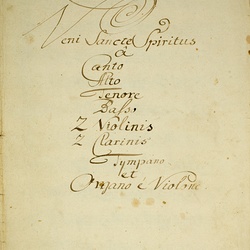 Veni Sancte Spiritus
a
Canto
Alto
Tenore
Basso
2 Violinis
2 Clarinis
Tympano
et
Organo è Violone